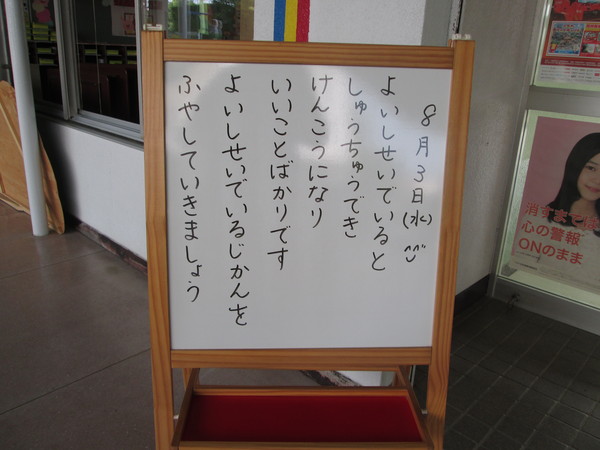 8月3日(水)
よいしせいでいると
しゅうちゅうでき
けんこうになり
いいことばかりです
よいしせいでいるじかんを
ふやしていきましょう
消すまでは
心の警報
ONのまま